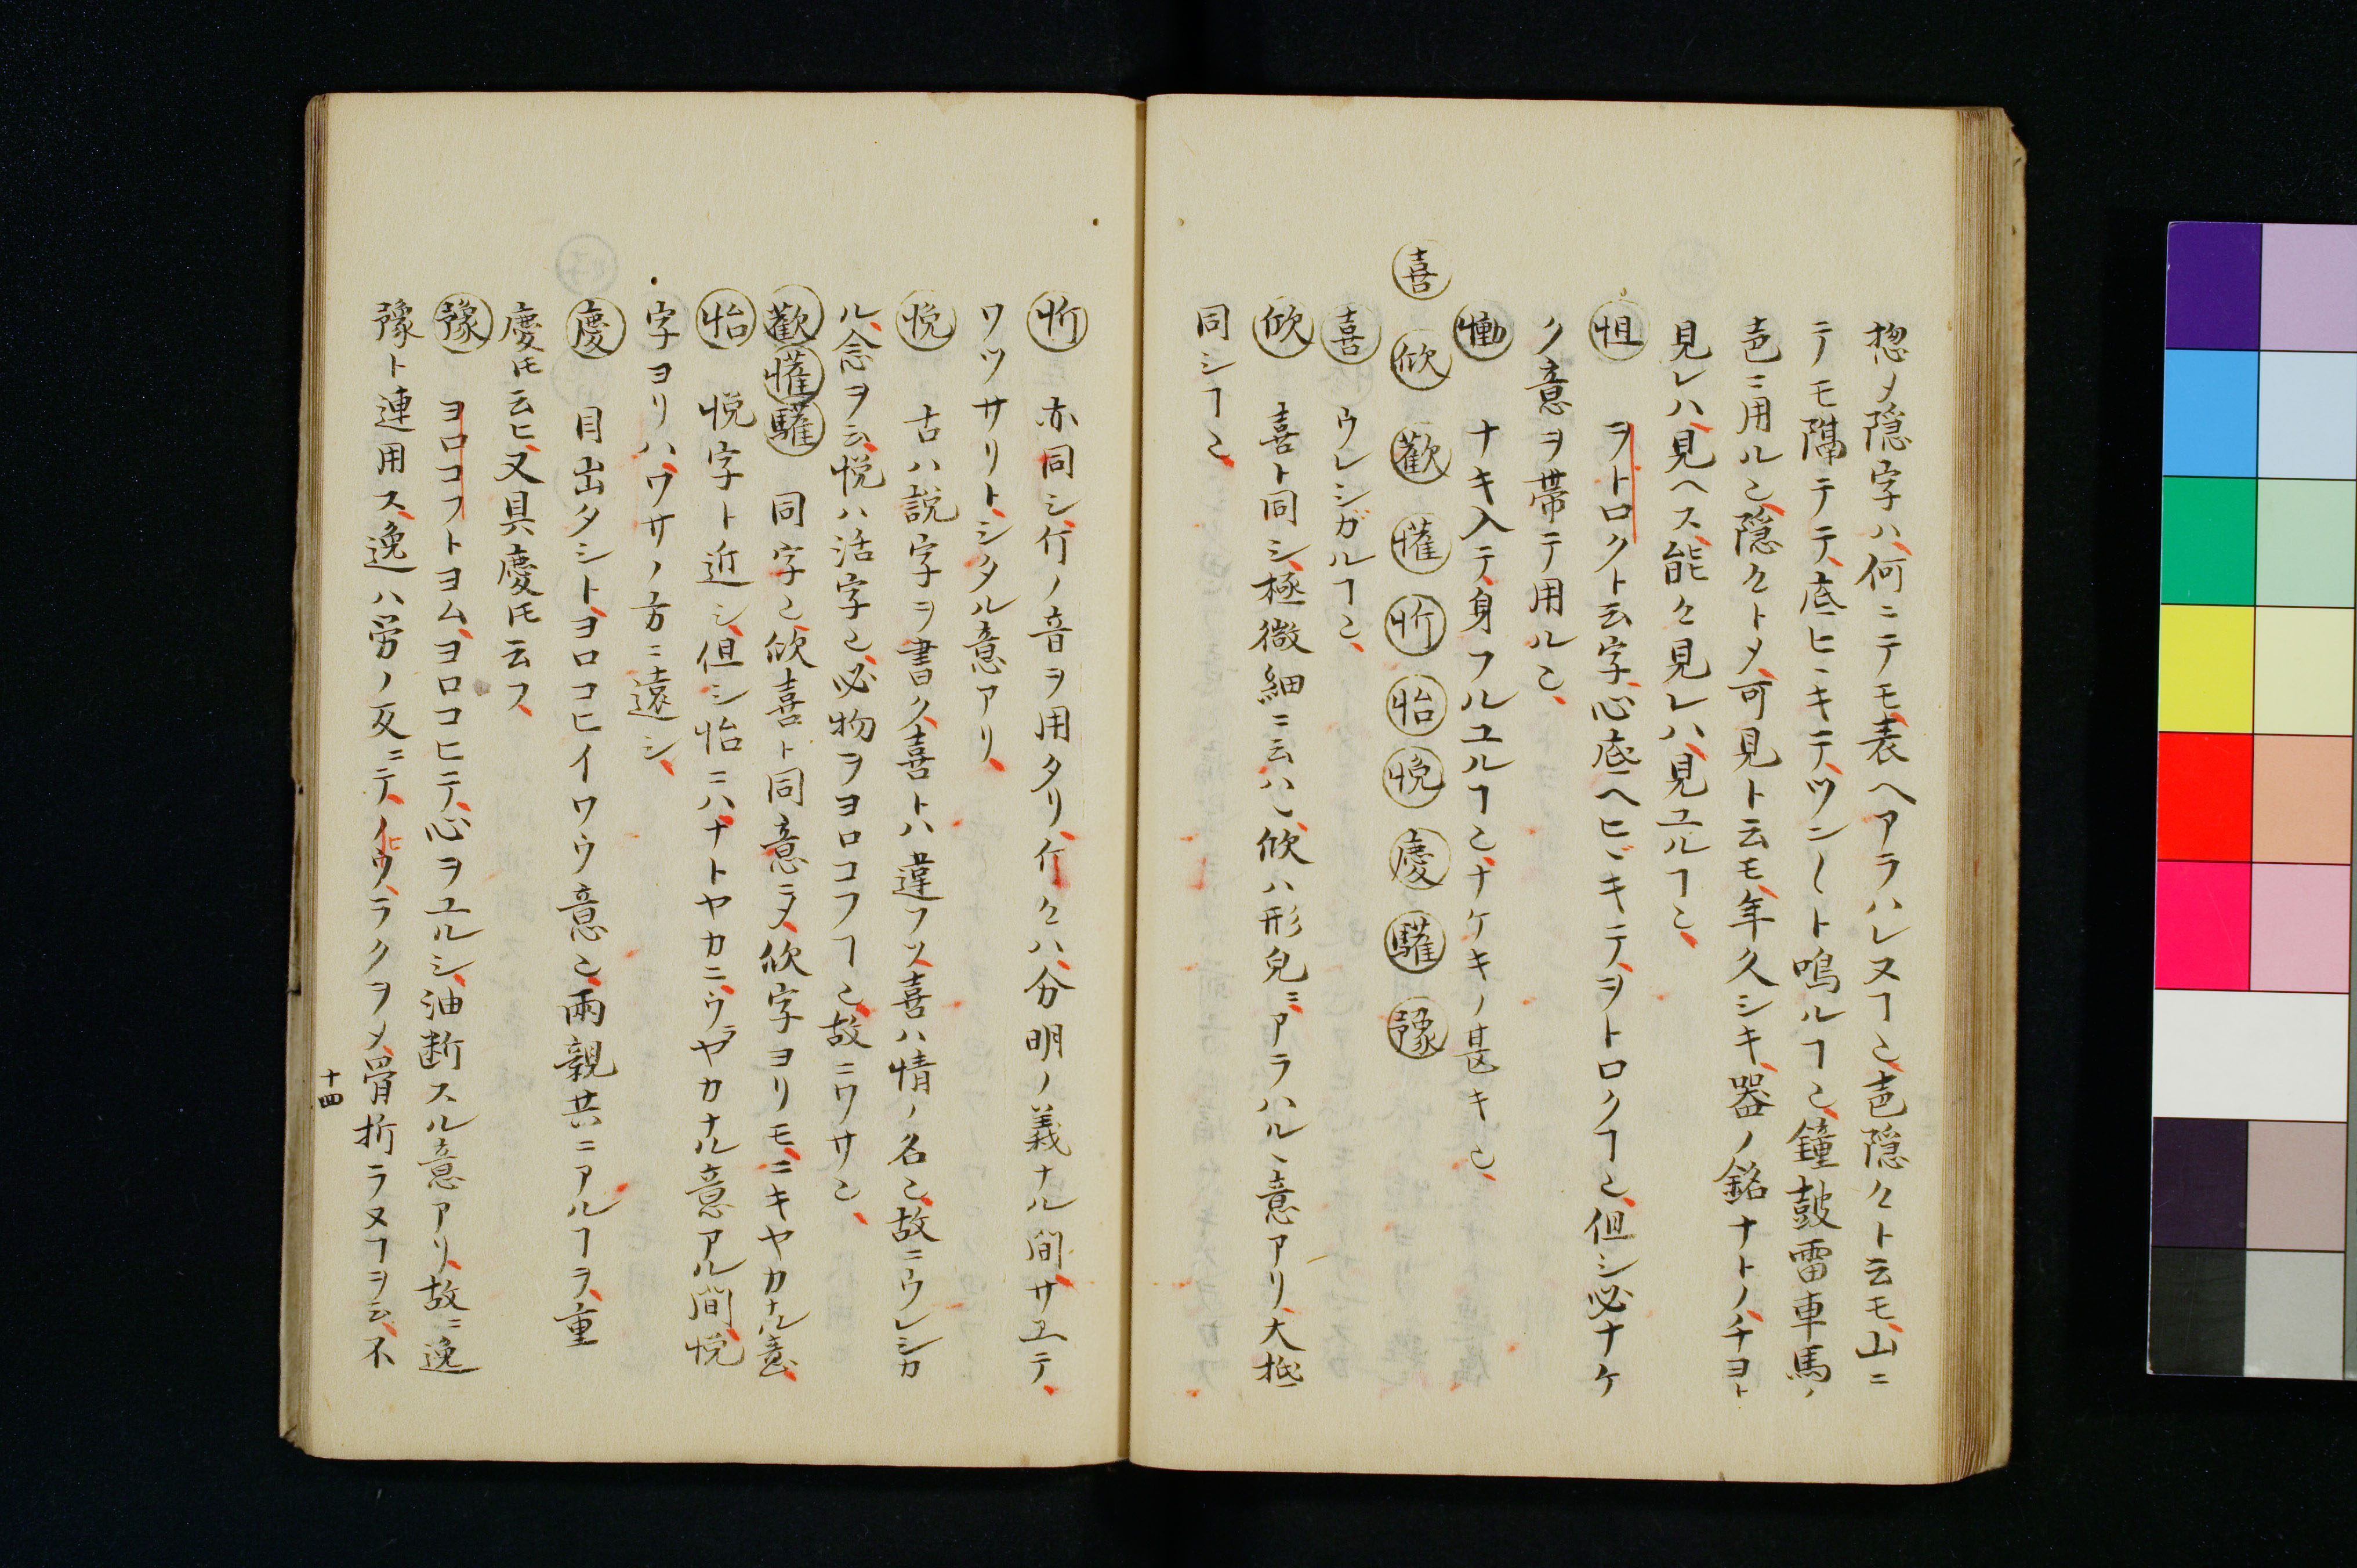 惣〆隠字ハ何ニテモ表ヘアラハレヌヿ〻皀隠〻ト云モ山ニ
テモ隔テテ底ヒヽキテツン〱ト鳴ルヿ〻鐘鼓雷車馬ノ
皀ニ用ル〻隠〻ト〆可見ト云モ年久シキ器ノ銘ナトノチヨト
見レハ見ヘス能〻見レハ見ユルヿ〻
怛 ヲトロクト云字心底ヘヒヾキテヲトロクヿ〻但シ必ナケ
ク意ヲ帯テ用ル〻
慟 ナキ入テ身フルユルヿ〻ナケキノ甚キ〻
喜 欣 歡 懽 忻 怡 悦 慶 驩 豫
喜 ウレシガルヿ〻
欣 喜ト同シ極微細ニ云ハヽ欣ハ形皃ニアラハルヽ意アリ大抵
同シヿ〻
忻 亦同シ斤ノ音ヲ用タリ斤〻ハ分明ノ義ナル間サエテ
ワツサリトシタル意アリ
悦 古ハ説字ヲ書ク喜トハ違フソ喜ハ情ノ名〻故ニウレシカ
ル念ヲ云悦ハ活字〻必物ヲヨロコフヿ〻故ニワサ〻
歡 懽 驩 同字〻欣喜ト同意ニ〆欣字ヨリモニキヤカナル意
怡 悦字ト近シ但シ怡ニハナトヤカニウラヤカナル意アル間悦
字ヨリハワサノ方ニ遠シ
慶 目出タシトヨロコヒイワウ意〻兩親共ニアルヿヲ重
慶氏云ヒ又具慶氏云フ
豫 ヨロコフトヨムヨロコヒテ心ヲユルシ油断スル意アリ故ニ逸
豫ト連用ス逸ハ労ノ反ニテイウラクヲ〆骨折ラヌヿヲ云不
十四